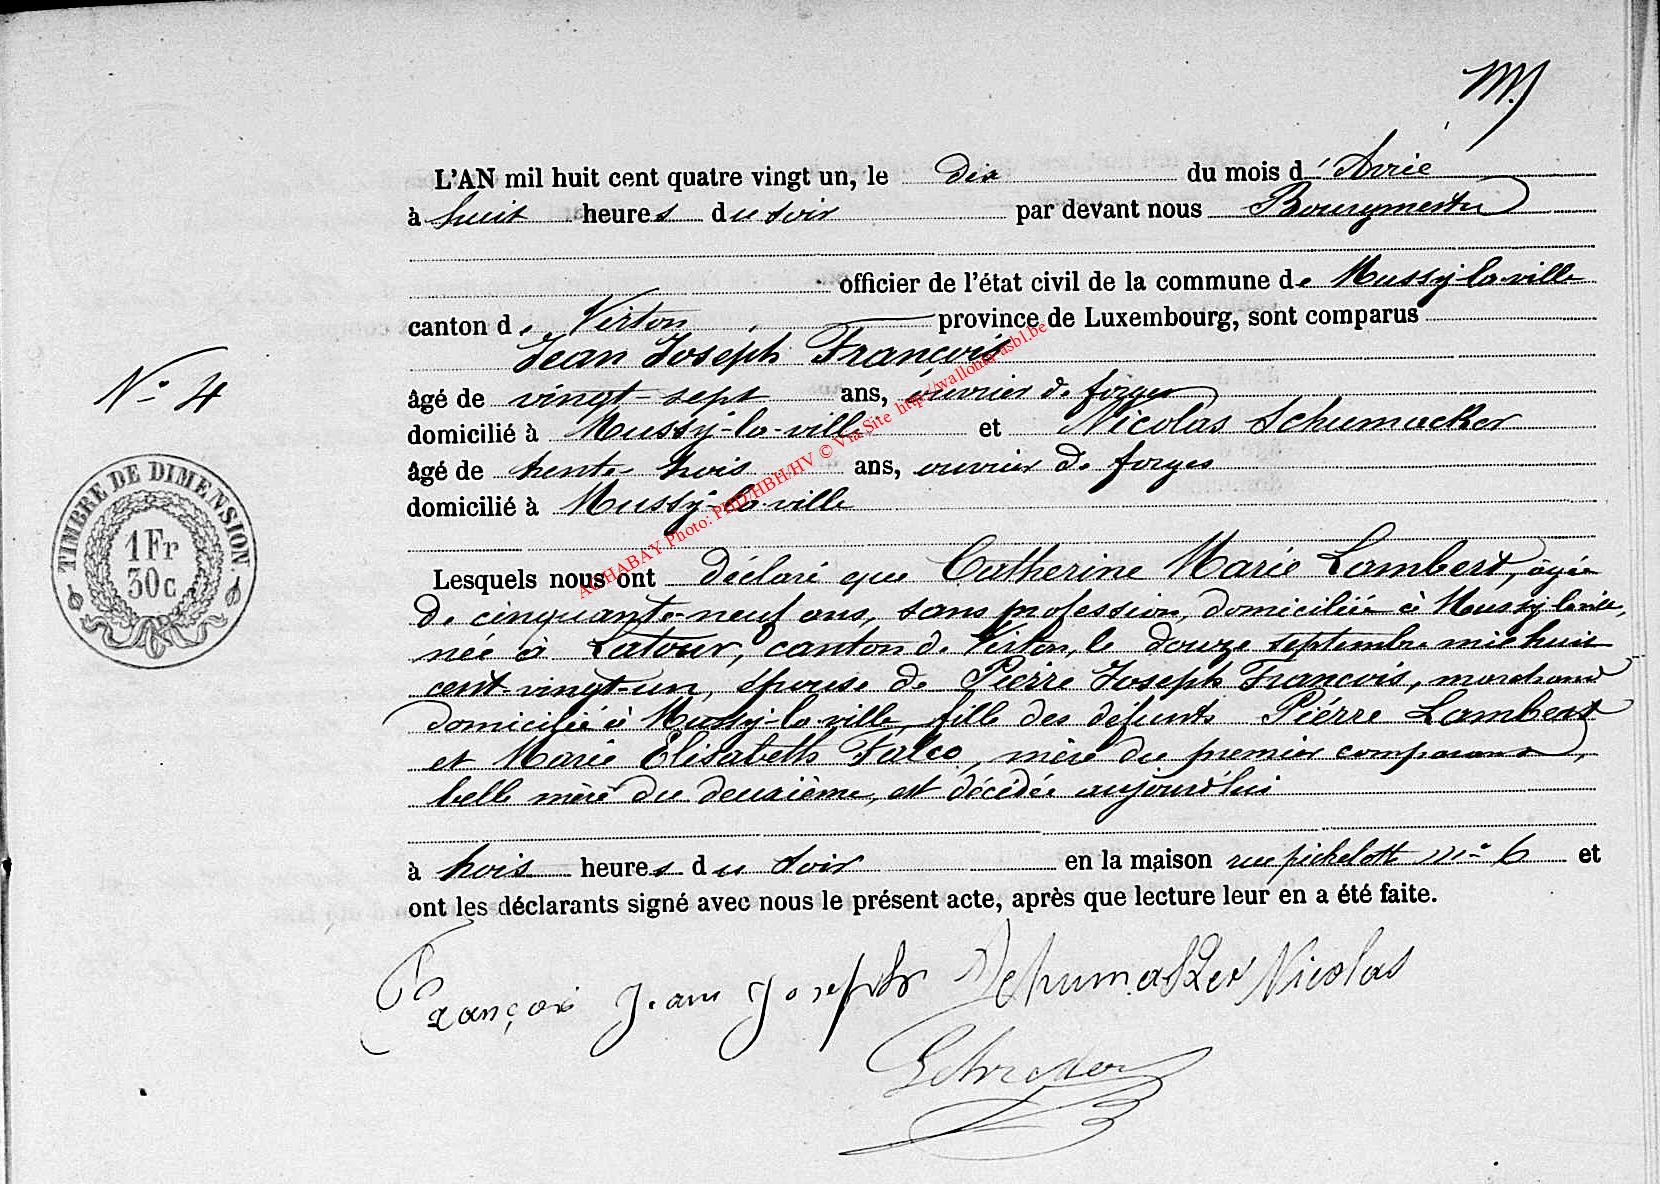 M)
L'AN mil huit cent quatre vingt un, le dix du mois d'Avril
à huit heures du soir par devant nous Bourgmestre
officier de l'état civil de la commune de Mussy-la-ville
canton de Virton, province de Luxembourg, sont comparus
Jean Joseph François
N° 4
âgé de vingt-sept ans, ouvrier de forges
domicilié à Mussy-la-ville et Nicolas Schumacker
âgé de trente trois ans, ouvrier de forges
domicilié à Mussy-la-ville
ACHABAY Photo: PHD/HBH/HV © Via Site http://wallonia-asbl.be
TIMBRE DE DIMENSION
1 Fr
30c
Lesquels nous ont déclaré que Catherine Marie Lambert, agée
de cinquante-neuf ans, sans profession, domiciliée à Mussy la ville,
née à Latour, canton de Virton, le douze septembre mil huit
cent-vingt-un, épouse de Pierre Joseph François, marchand
domicilié à Mussy-la-ville, fille des défunts Piérre Lambert
et Marie Elisabeth Falco, mère du premier comparant,
belle mère du deuxième, est décédée aujourd'hui
à trois heures du soir en la maison rue pichelotte n° 6 et
ont les déclarants signé avec nous le présent acte, après que lecture leur en a été faite.
François Jean Joseph Schumacker Nicolas